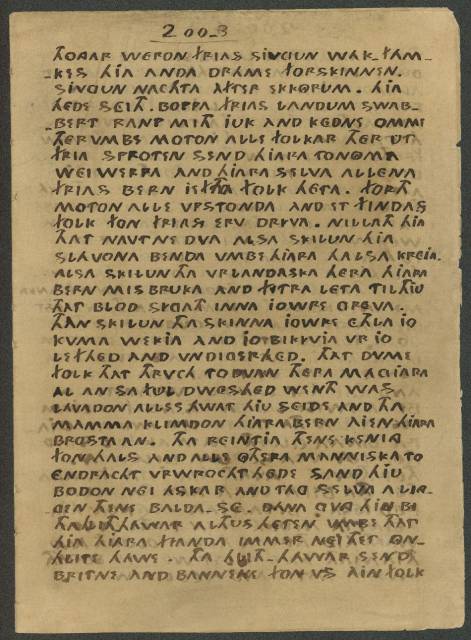 THOGAR WERON FRIAS SIVGUN WAK-FAM-
-KES HIA ANDA DRAME FORSKINNEN.
SIVGUN NACHTA AFTER EKKORUM. HIA
HEDE SEITH. BOPPA FRIAS LANDUM SWAB-
-BERT RANE MITH IUK AND KEDNE OMME
THERUMBE MOTON ALLE FOLKAR THER UT
FRIA SPROTEN SEND HIARA TONOMA
WEI WERPA AND HIARA SELVA ALLENA
FRIAS BERN IEFTHA FOLK HETA. FORTH
MOTON ALLE UPSTONDA AND ET FINDAS
FOLK FON FRIAS ERV DRIVA. NILLATH HIA
THAT NAVT NE DUA ALSA SKILUN HIA
SLAVONA BENDA UMBE HIARA HALSA KREIA.
ALSA SKILUN THA URLANDASKA HERA HIARA
BERN MISBRUKA AND FITRA LETA TIL THIU
THAT BLOD SIGATH INNA IOWRE GREVA.
THAN SKILUN THA SKINNA IOWRE ETHLA IO
KVMA WEKIA AND IO BIKIVIA VR IO
LEFHED AND VNDIGERHED. THAT DVME
FOLK THAT THRUCH TODVAN THERA MAGIARA
AL AN SA FUL DWESHED WENTH WAS
LAVADON ALLES HWAT HIU SEIDE AND THA
MAMMA KLIMDON HIARA BERN AIEN HIARA
BROSTA AN. THA REINTIA THENE KENIG
FON HALS AND ALLE OTHERA MANNISKA TO
ENDRACHT URWROCHT HEDE SAND HIU
BODON NEI ASKAR AND TAG SELVA ALING-
GEN THENE BALDA-SE. DANA GVG HIU BI
THA HLITHHAWAR ALTHUS HETEN UMBE THAT
HIA HIARA FIANDA IMMER NEI THET ON-
HLITE HAWE. THA HLITH-HAWAR SEND
BRITNE AND BANNENE FON VS AIN FOLK